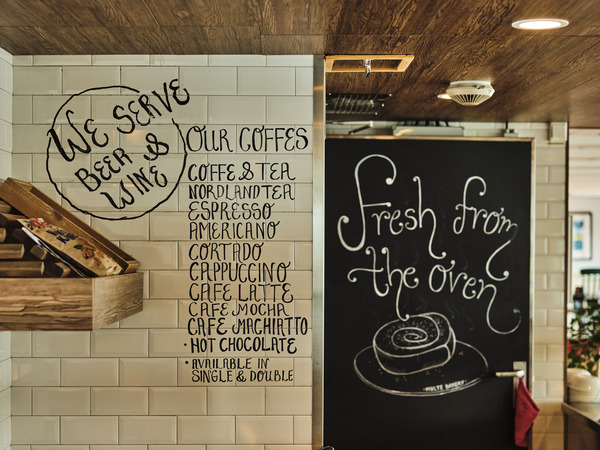 WE SERVE
BEER &
WINE
OUR COFFES
COFFE & TEA
NORDLAND TEA
ESPRESSO
AMERICANO
CORTADO
CAPPUCCINO
CAFE LATTE
CAFE MOCHA
CAFE MACHIATTO
• HOT CHOCOLATE
• AVAILABLE IN
SINGLE & DOUBLE
Fresh from
the oven
BAKERY